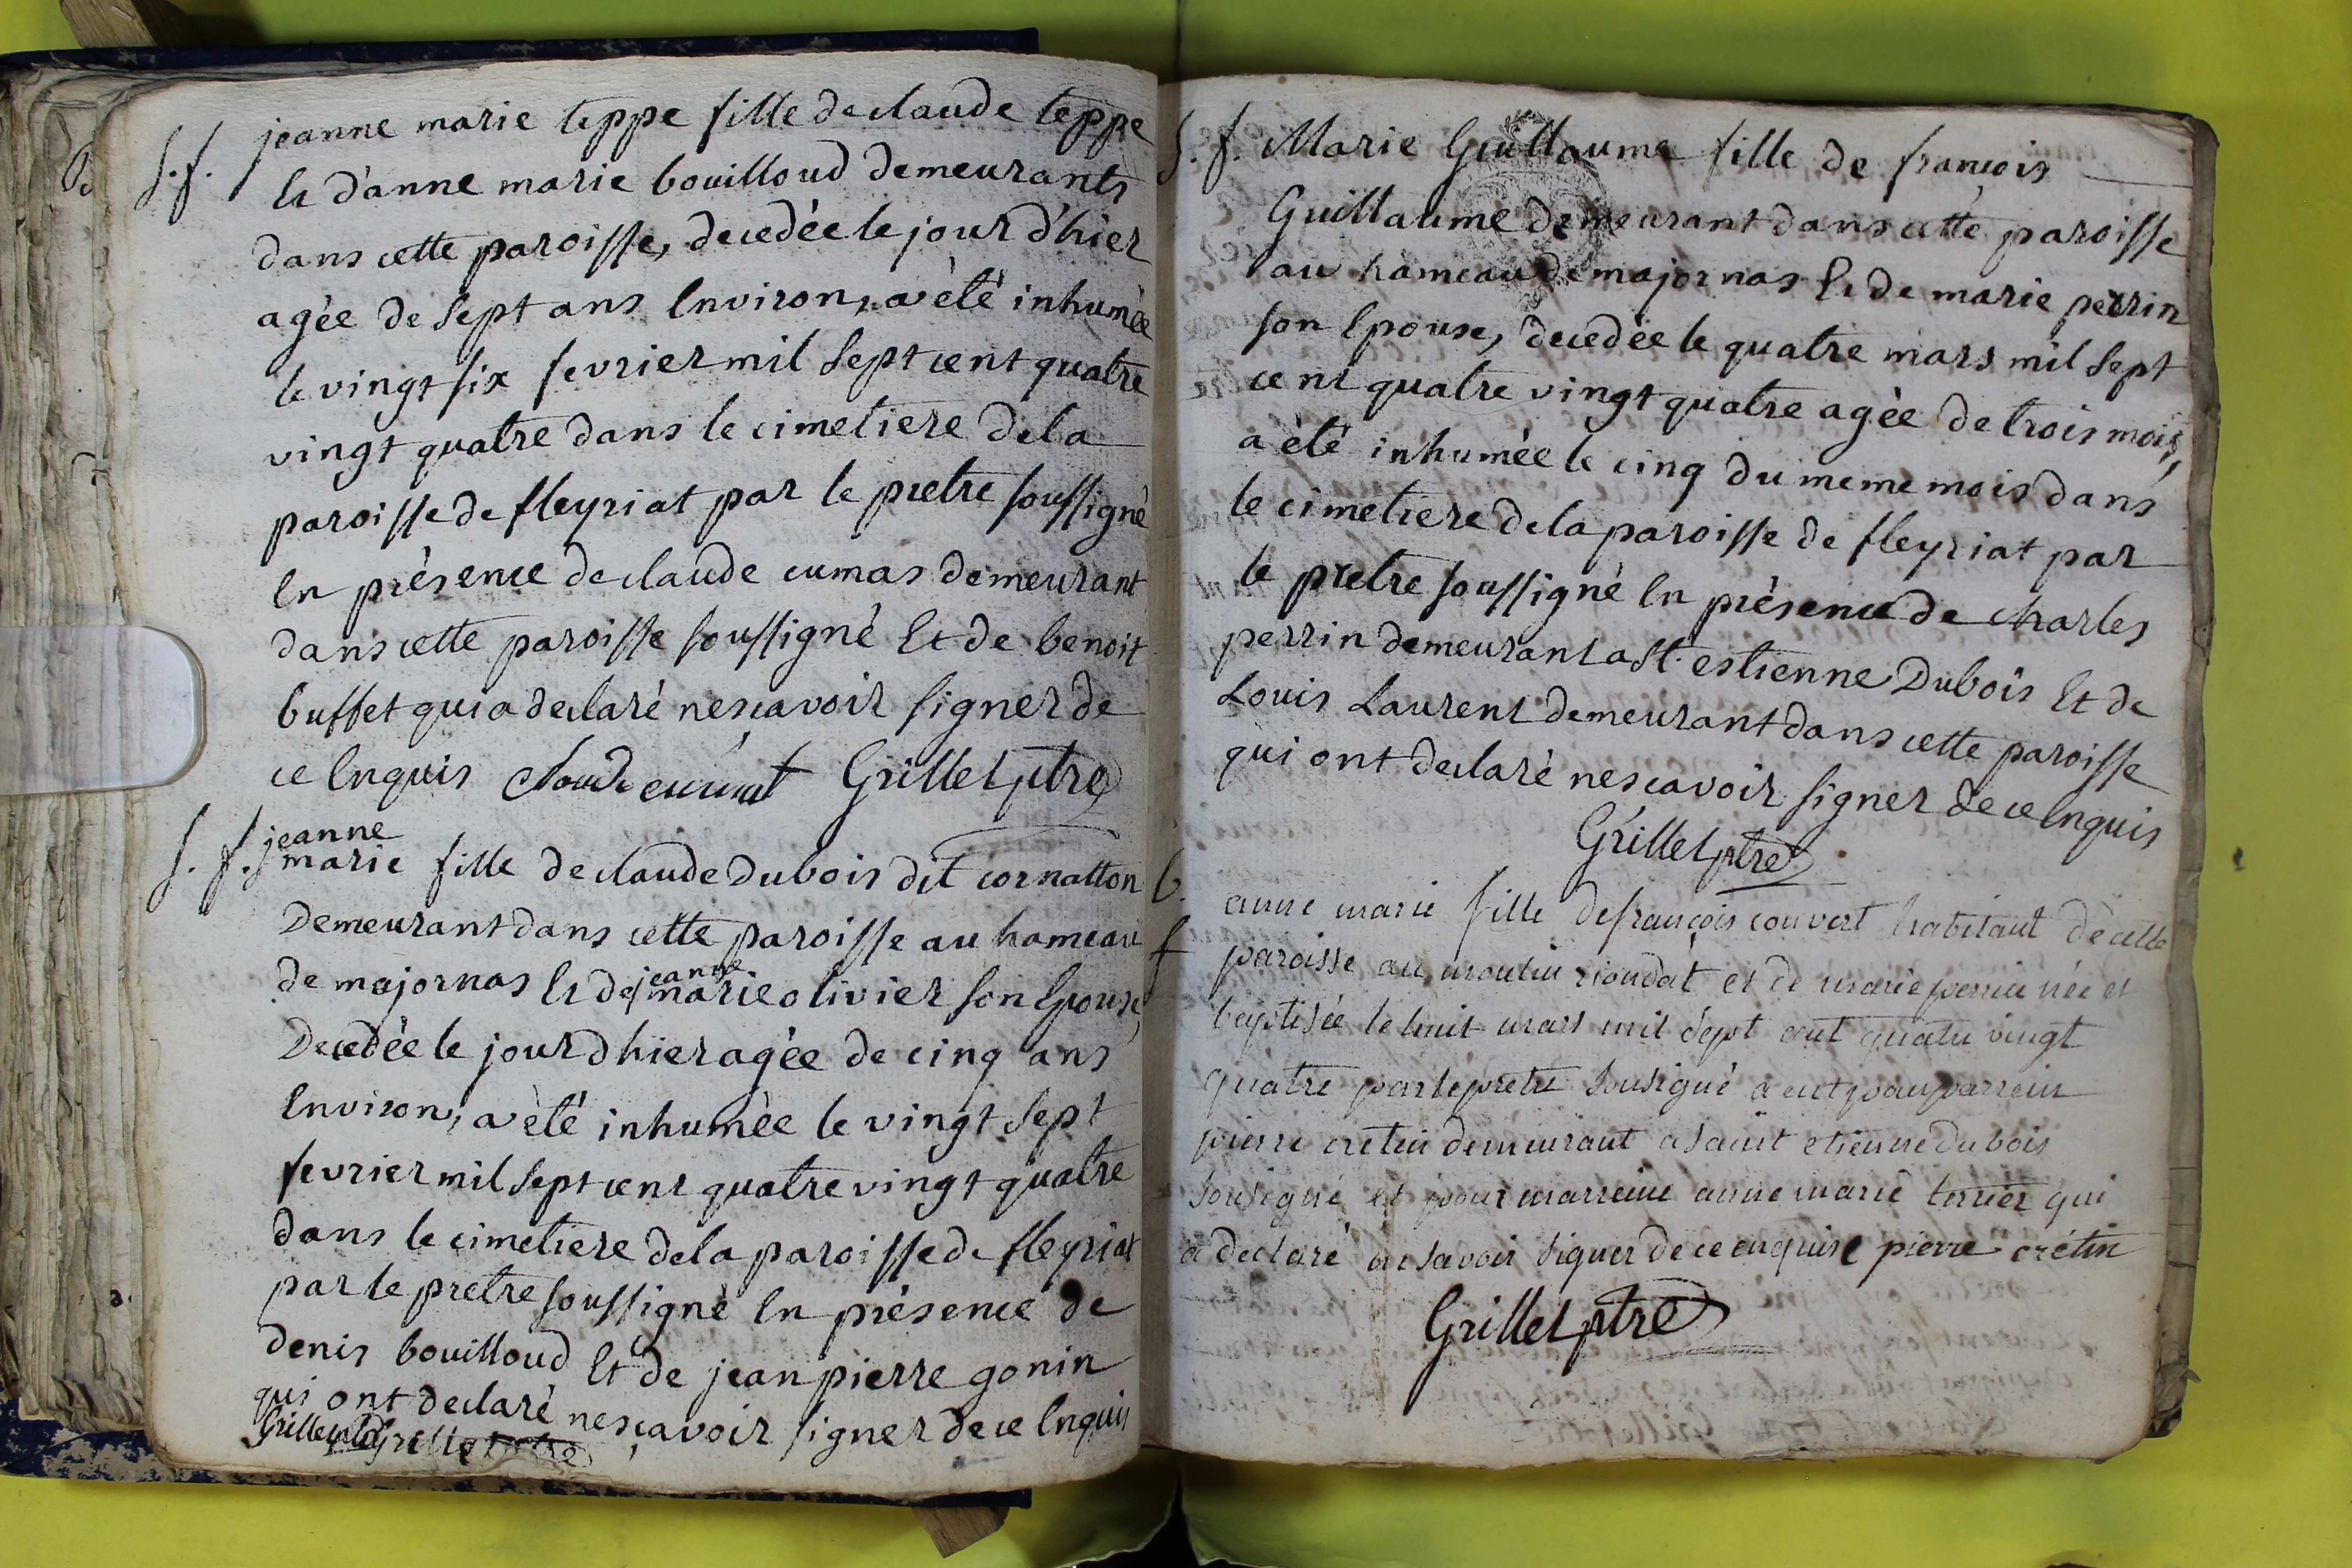 S.f.
jeanne marie teppe fille de claude teppe
Et d'anne marie bouilloud demeurants
dans cette paroisse, decedée le jour d'hier
agée de sept ans Environ, a été inhumée
le vingt six fevrier mil sept cent quatre
vingt quatre dans le cimetiere de la
paroisse de fleyriat par le pretre soussigné
En présence de claude cumas demeurant
dans cette paroisse soussigné Et de benoit
buffet qui a declaré ne scavoir signer de
ce Enquis Grillet ptre
S.f. jeanne
marie fille de claude Dubois dit cornatton
Demeurant dans cette paroisse au hameau
de majornas Et de jeanne marie olivier son Epouse,
Decedée le jour d'hier agée de cinq ans
Environ, a été inhumée le vingt sept
fevrier mil sept cent quatre vingt quatre
dans le cimetiere de la paroisse de fleyriat
par le pretre soussigné En présence de
denis bouilloud Et de jean pierre gonin
qui ont declaré ne scavoir signer de ce Enquis
Grillet ptre
S.f. Marie Guillaume fille de francois
Guillaume demeurant dans cette paroisse
au hameau de majornas Et de marie perrin
son Epouse, decedée le quatre mars mil sept
cent quatre vingt quatre agée de trois mois,
a été inhumée le cinq du meme mois dans
le cimetiere de la paroisse de fleyriat par
le pretre soussigné En présence de charles
perrin demeurant a St. estienne Dubois Et de
Louis Laurent demeurant dans cette paroisse
qui ont declaré ne scavoir signer de ce Enquis
Grillet ptre
b.
f
anne marie fille de françois couvert habitant de cette
paroisse au moulin rioudat et de marie perrin née et
baptisée le huit mars mil sept cent quatre vingt
quatre par le pretre sousigné a eut pour parrein
pierre cretin demeurant a saint etienne du bois
sousigné et pour marreine anne marie terrier qui
a declaré ne savoir signer de ce enquise pierre crétin
Grillet ptre